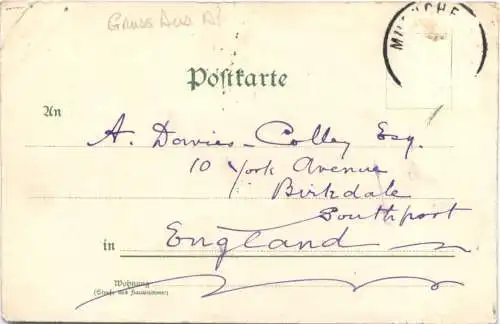 Gruss Aus
MÜNCHE
Postkarte
An
A. Davies-Colley Esq.
10 York Avenue
Birkdale
Southport
in England
Wohnung
(Straße und Hausnummer)